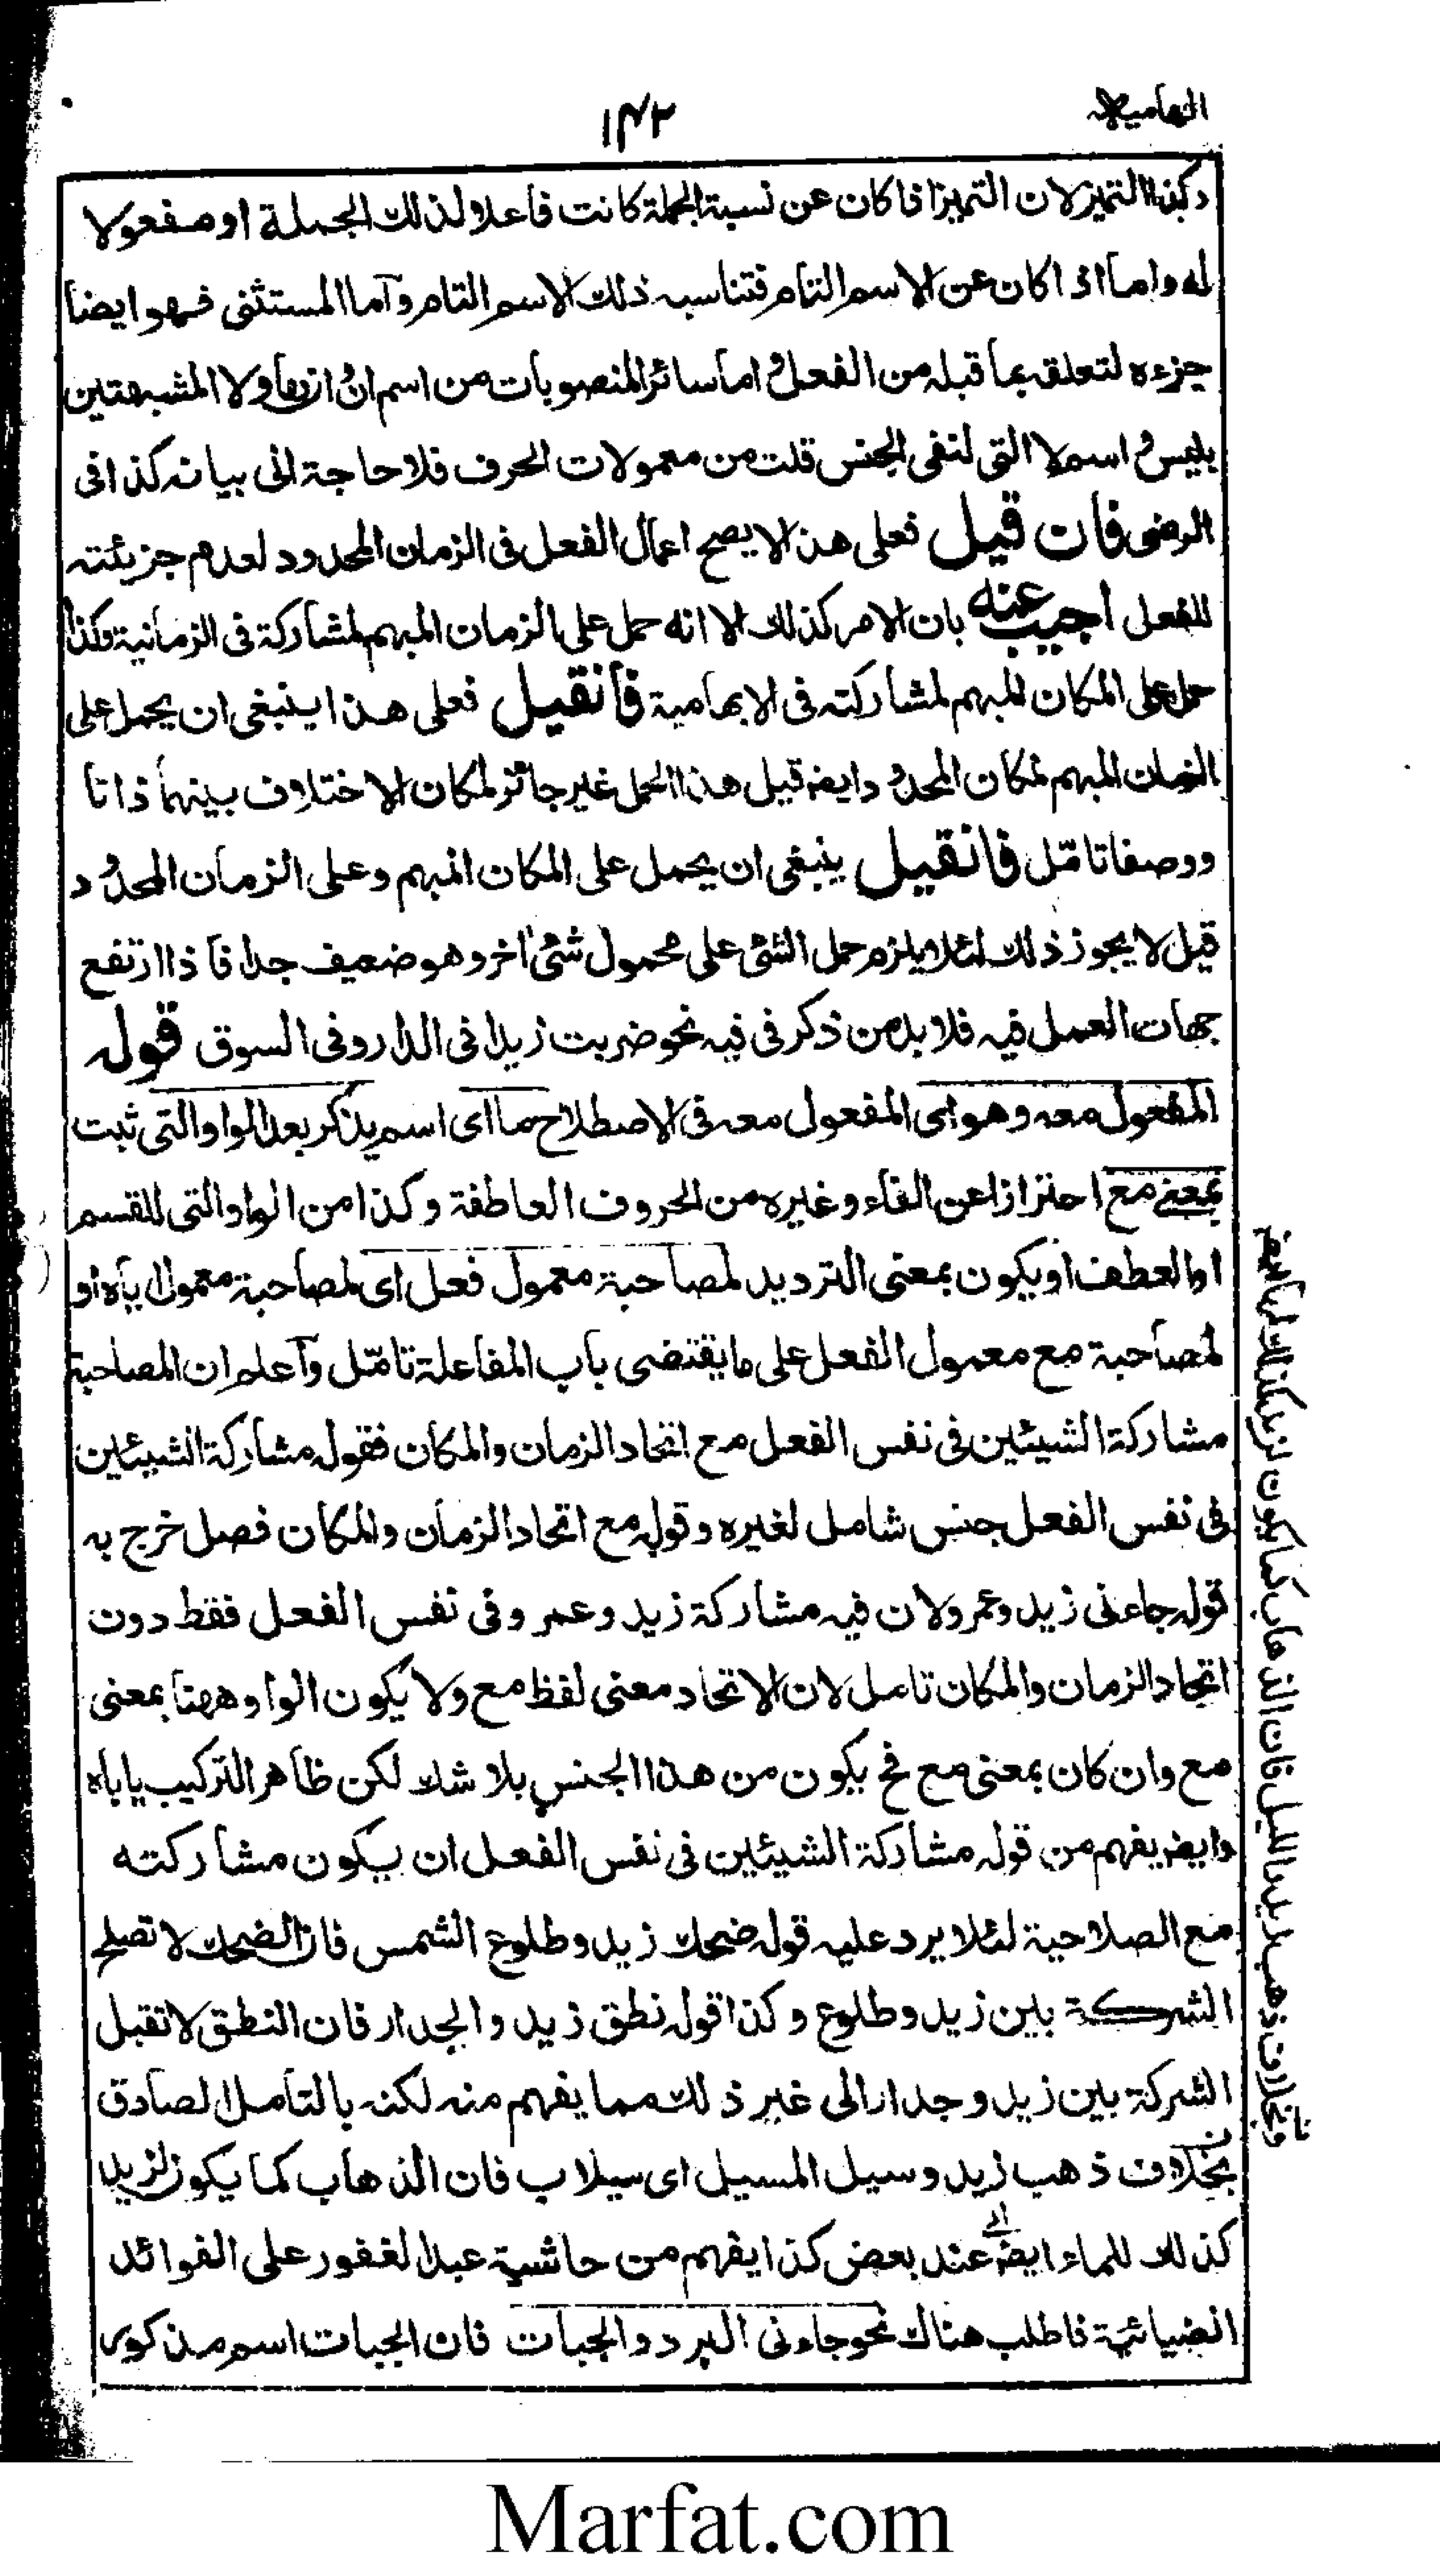 الهامية
۱۴۲
وكذا التميز لان التميز اذا كان عن نسبة الجملة كانت فاعلا لذلك الجملة او مفعولا
له واما اذا كان عن الاسم التام فتناسبه ذلك الاسم التام وآما المستثنى فهو ايضا
جزءه لتعلقه بما قبله من الفعل واما سائر المنصوبات من اسم ان وولا المشبهتين
بليس واسم لا التى لنفى الجنس قلت من معمولات الحرف فلا حاجة الى بيانه كذا فى
الرضى فان قيل فعلى هذا لا يصح اعمال الفعل فى الزمان المحدود لعدم جزيئته
للفعل اجيب عنه بان الامر كذلك الا انه حمل على الزمان المبهم لمشاركة فى الزمانية وكذا
حمل على المكان المبهم لمشاركته فى الابهامية فانقيل فعلى هذا ينبغى ان يحمل على
الزمان المبهم لمكان المحدود وايضا قيل هذا الحمل غير جائز لمكان الاختلاف بينهما ذاتا
ووصفا تامّل فانقيل ينبغى ان يحمل على المكان المبهم وعلى الزمان المحدود
قيل لا يجوز ذلك لئلا يلزم حمل الشئ على محمول شئ اخر وهو ضعيف جدا فاذا ارتفع
جهات العمل فيه فلا بد من ذكر فى فيه نحو ضربت زيدا فى الدار وفى السوق قوله
المفعول معه وهو اى المفعول معه فى الاصطلاح ما اى اسم يذكر بعد الواو التى ثبت
بمعنى مع احترازا عن الفاء وغيره من الحروف العاطفة وكذا من الواو التى للقسم
او العطف او يكون بمعنى الترديد لمصاحبة معمول فعل اى لمصاحبة معمول اياه او
لمصاحبة مع معمول الفعل على ما يقتضى باب المفاعلة تامّل وآعلم ان المصاحبة
مشاركة الشيئين فى نفس الفعل مع اتحاد الزمان والمكان فقوله مشاركة الشيئين
فى نفس الفعل جنس شامل لغيره وقوله مع اتحاد الزمان والمكان فصل خرج به
قوله جاءنى زيد وعمرو لان فيه مشاركة زيد وعمرو فى نفس الفعل فقط دون
اتحاد الزمان والمكان تامل لان الاتحاد معنى لفظ مع ولا يكون الواو ههنا بمعنى
مع وان كان بمعنى مع فح يكون من هذا الجنس بلا شك لكن ظاهر التركيب ياباه
وايضا يفهم من قوله مشاركة الشيئين فى نفس الفعل ان يكون مشاركته
مع الصلاحية لئلا يرد عليه قوله ضحك زيد وطلوع الشمس فان الضحك لا تصلح
الشركة بين زيد وطلوع وكذا قوله نطق زيد والجدار فان النطق لا تقبل
الشركة بين زيد وجدار الى غير ذلك مما يفهم منه لكنه بالتامل الصادق
بخلاف ذهب زيد وسيل المسيل اى سيلاب فان الذهاب كما يكون لزيد
كذلك للماء ايضا عند بعض كذا يفهم من حاشية عبد الغفور على الفوائد
الضيائية فاطلب هناك نحو جاءنى البرد والجبات فان الجبات اسم مذكور
وبخلاف ذهب زيد والليل فان الذهاب كما يكون لزيد كذلك
Marfat.com